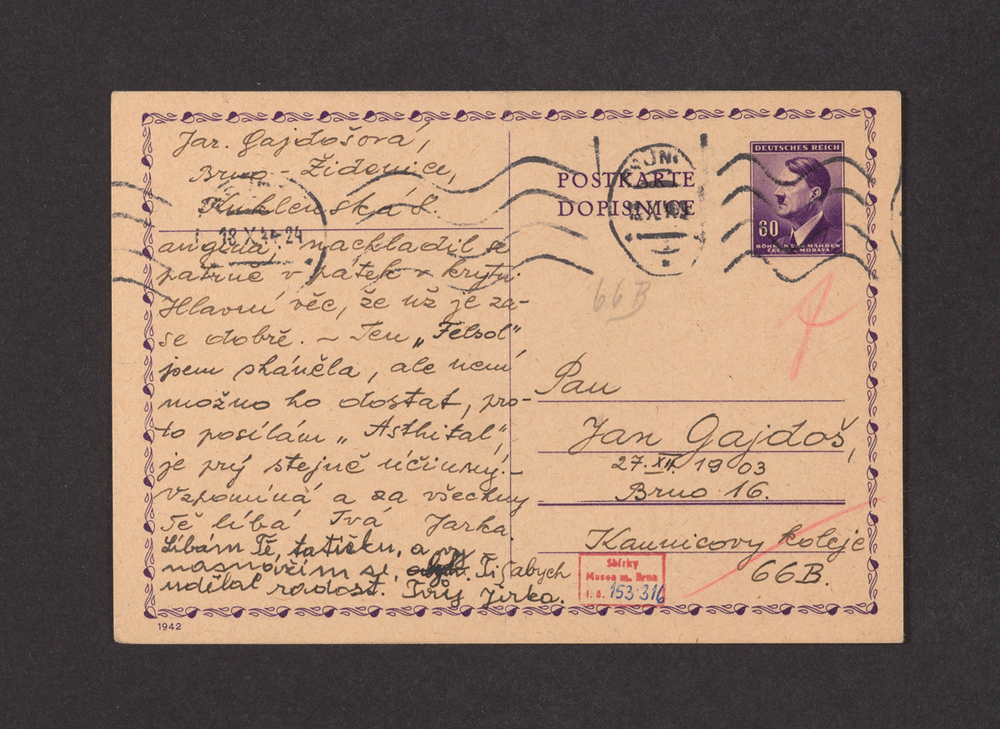 Jar. Gajdošová,
Brno - Židenice,
Kuklenská 8.
18 X 43-24
angína, nachladil se
patrně v pátek v krytu.
Hlavní věc, že už je za-
se dobře. - Ten „Felsol"
jsem sháněla, ale není
možno ho dostat, pro-
to posílám „Asthital",
je prý stejně účinný. -
Vzpomíná a za všechny
Tě líbá Tvá Jarka.
Líbám Tě, tatíčku, a
vasnažím se, Ti, abych
udělal radost. Tvůj Jirka.
1942
POSTKARTE
DOPISNICE
DEUTSCHES REICH
60
BÖHMEN UND MÄHREN
ČECHY A MORAVA
66B
Pan
Jan Gajdoš,
27. XII. 1903
Brno 16.
Kaunicovy koleje
66B.
Sbírky
Musea m. Brna
i. č. 153-316